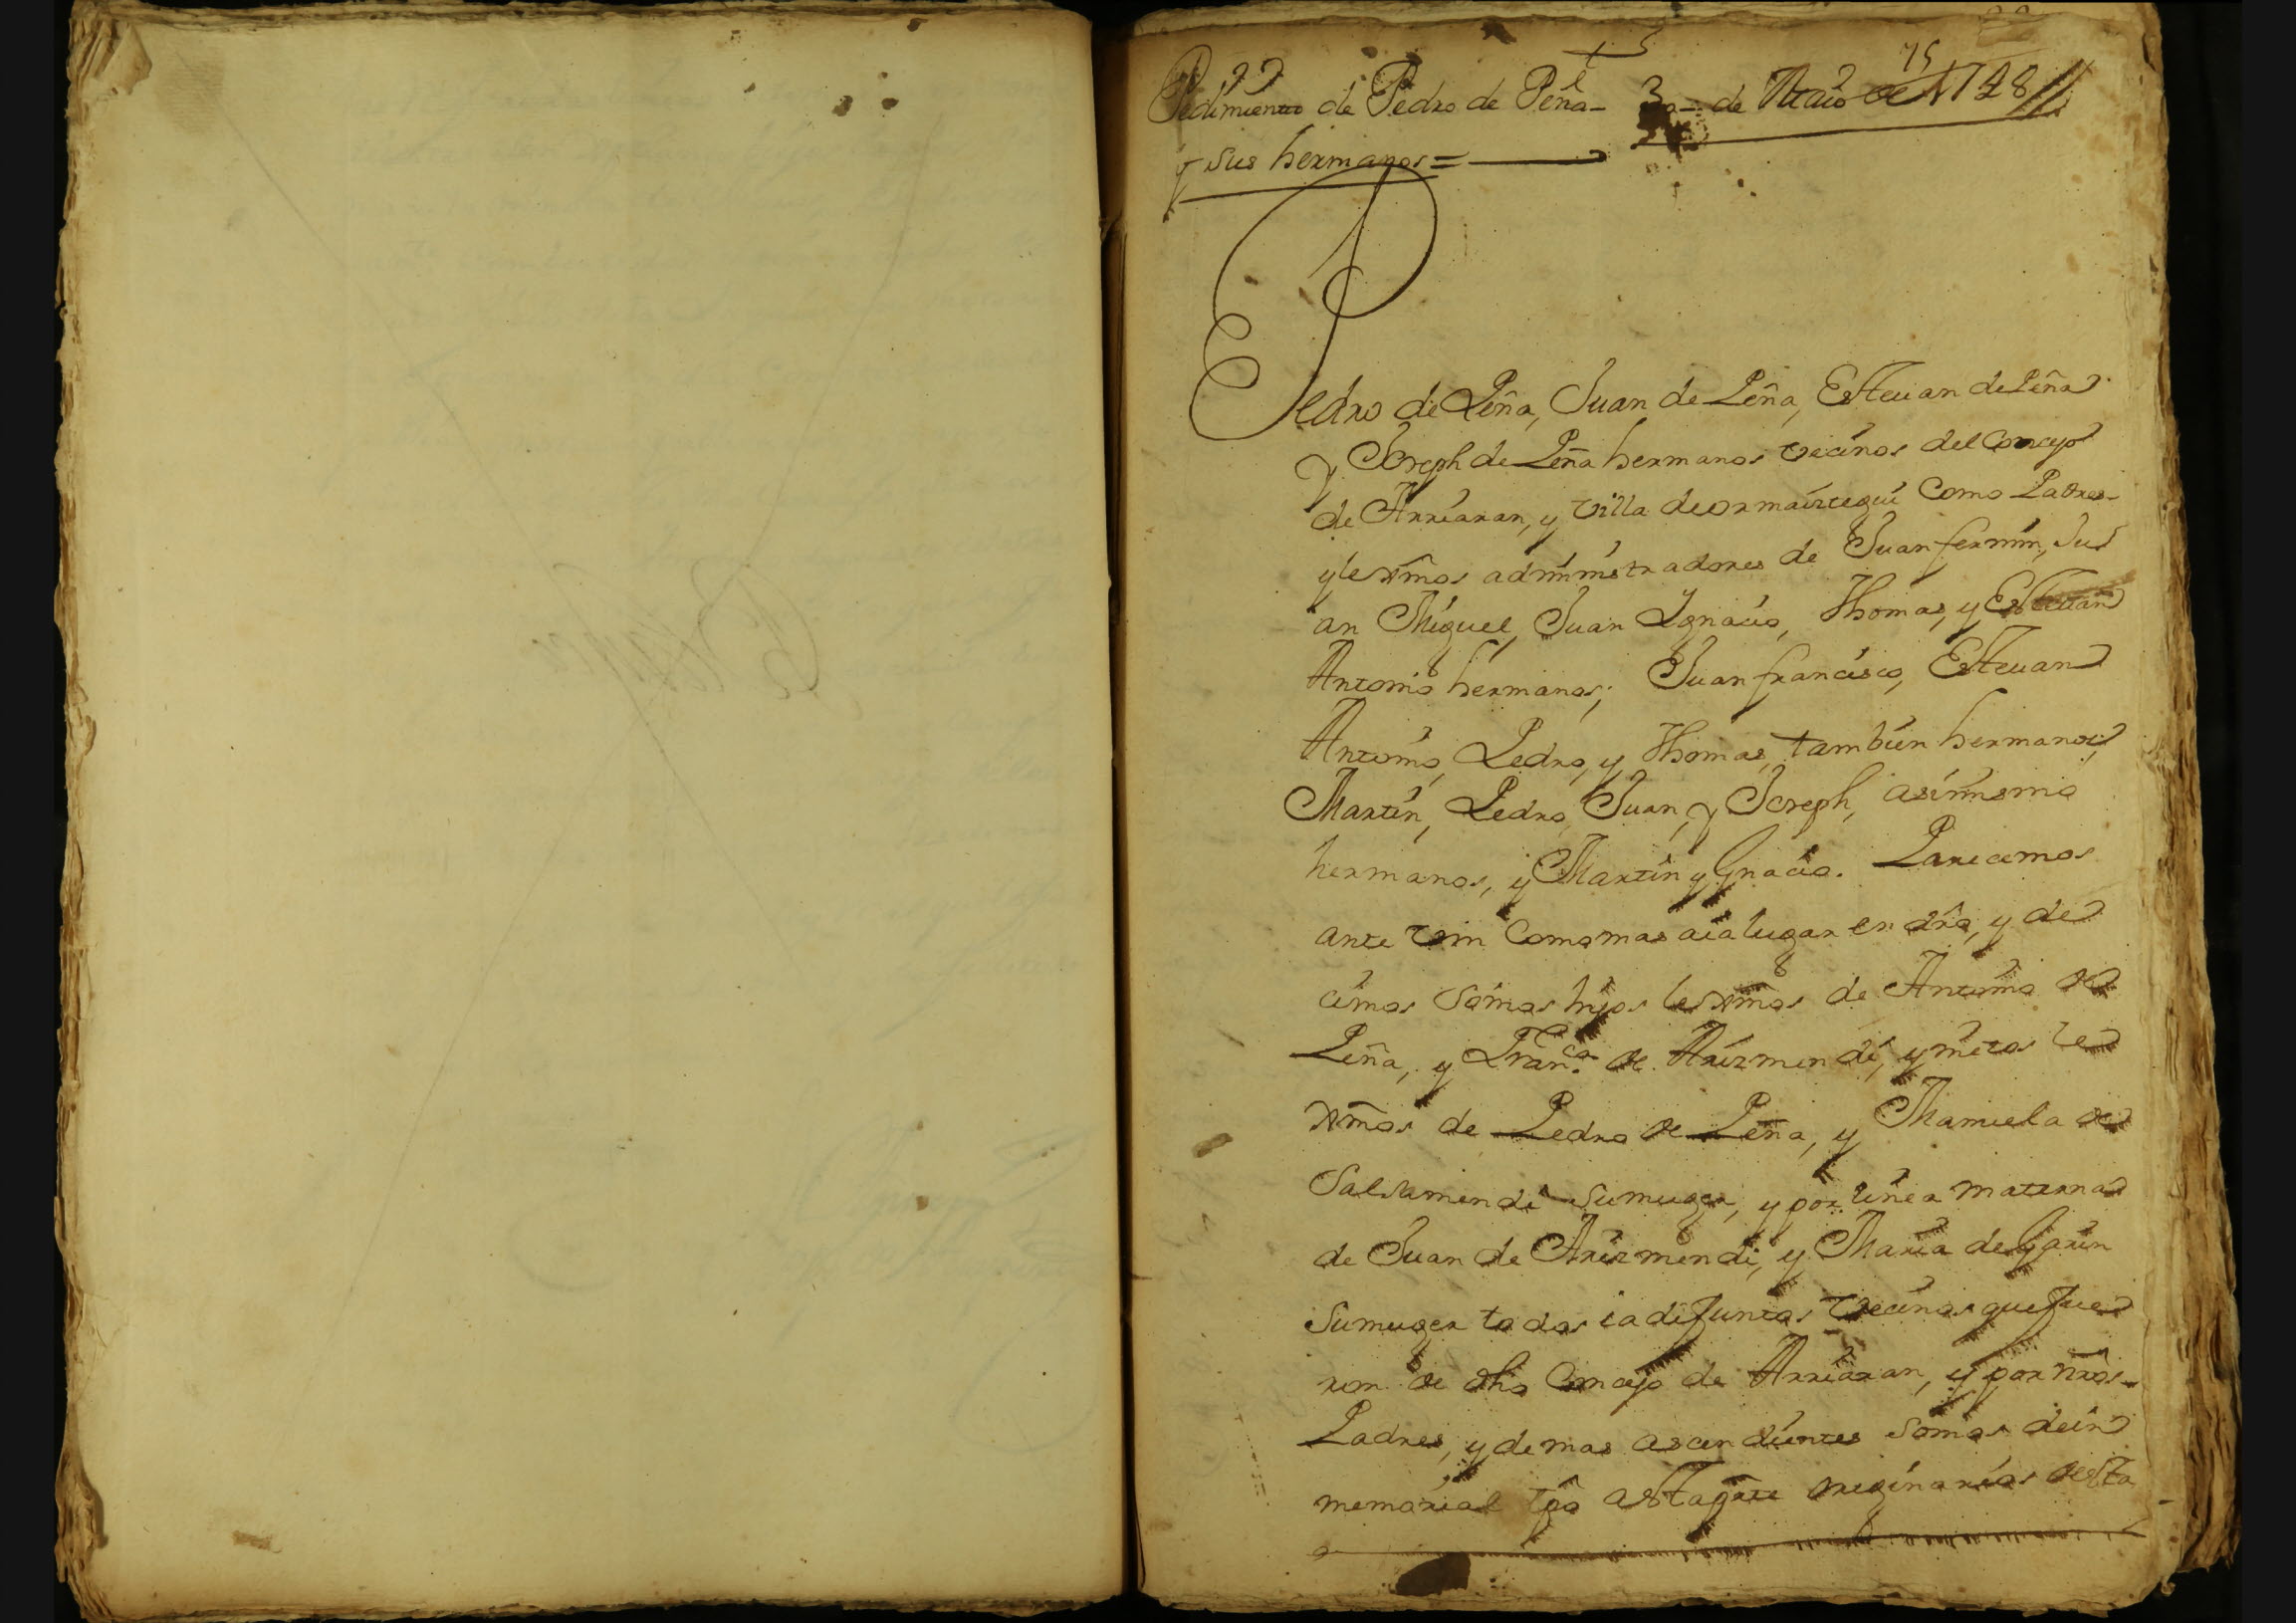 75
Pedimiento de Pedro de Peña- 3 de Maio de 1728
y sus hermanos =
Pedro de Peña, Juan de Peña, Esteuan de Peña
y Joseph de Peña hermanos vecinos del Concejo
de Arriaran, y villa de ormaiztegui Como Padres-
y lexmos administradores de Juan fermin, Jul
an Miguel, Juan Ygnacio, Thomas, y Esteuan
Antonio hermanos; Juan francisco, Esteuan
Antonio, Pedro, y Thomas, tambien hermanos;
Martin, Pedro, Juan, y Joseph, asimismo
hermanos, y Martin ygnacio. Parecemos
ante Vm Como mas aia lugar en dro, y de
cimos Somos hijos lexmos de Antonio de
Peña, y Franca de Arizmendi, y nietos le
xmos de Pedro de Peña, y Manuela de
Salsamendi su muger, y por linea materna
de Juan de Arizmendi, y Maria de Garin
su muger todos ia difuntos vecinos que fue
ron de dho Concejo de Arriaran, y por nros-
Padres, y demas ascendientes Somos de in
memorial tpo a esta parte originarios desta